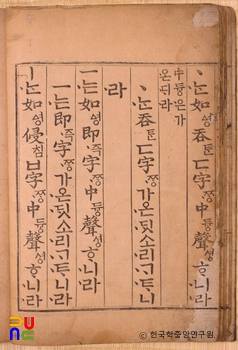 ㆍᄂᆞᆫ如ᅀᅧᆼ吞ᄐᆞᆫㄷ字ᄍᆞᆼ中듀ᇰ聲셔ᇰᄒᆞ니라
中듀ᇰ은가
온ᄃᆡ라
ㆍᄂᆞᆫ吞ᄐᆞᆫㄷ字ᄍᆞᆼ가온ᄃᆡᆺ소리ᄀᆞᄐᆞ니
라
ㅡᄂᆞᆫ如ᅀᅧᆼ即즉字ᄍᆞᆼ中듀ᇰ聲셔ᇰᄒᆞ니라
ㅡᄂᆞᆫ即즉字ᄍᆞᆼ가온ᄃᆡᆺ소리ᄀᆞᄐᆞ니라
ㅣᄂᆞᆫ如ᅀᅧᆼ侵침ㅂ字ᄍᆞᆼ中듀ᇰ聲셔ᇰᄒᆞ니라
ⓒ 한국학중앙연구원